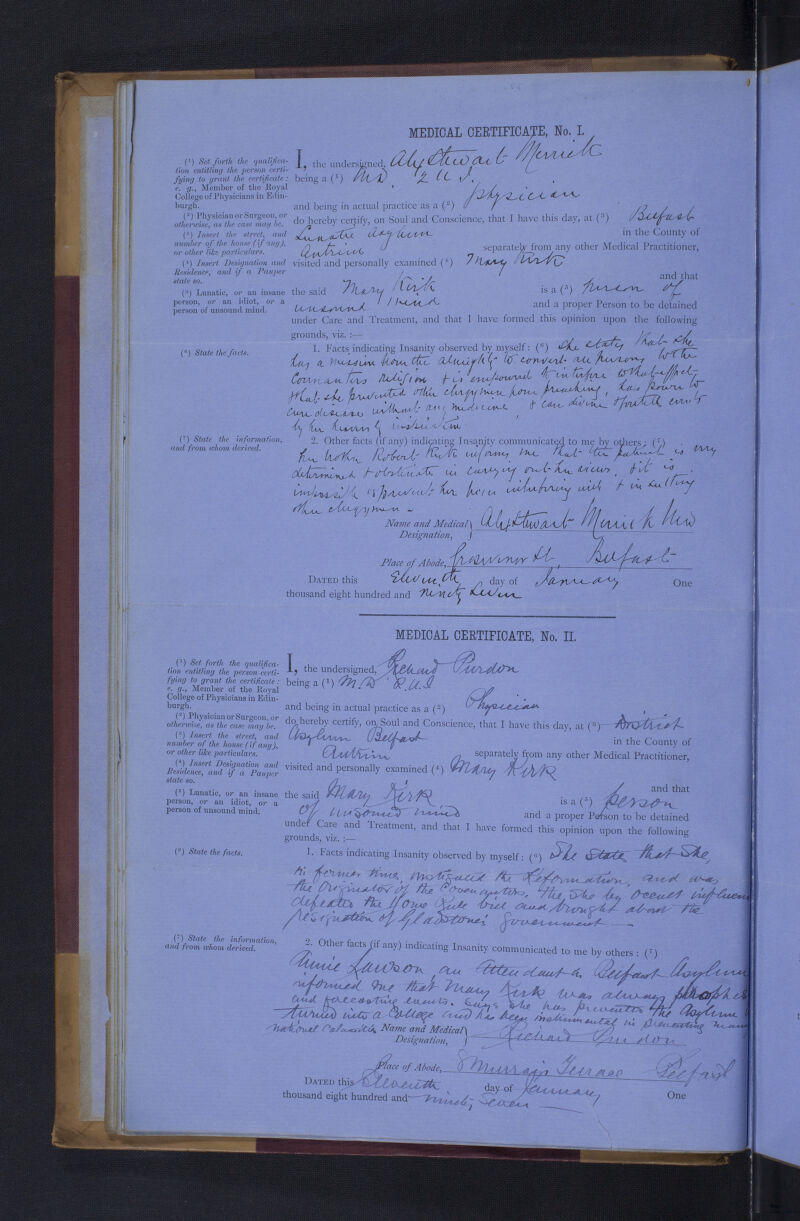 MEDICAL CERTIFICATE, No. I.
(¹) Set forth the qualifica-
tion entitling the person certi-
fying to grant the certificate:
e. g., Member of the Royal
College of Physicians in Edin-
burgh.
(²) Physician or Surgeon, or
otherwise, as the case may be.
(³) Insert the street, and
number of the house (if any),
or other like particulars.
(⁴) Insert Designation and
Residence, and if a Pauper
state so.
(⁵) Lunatic, or an insane
person, or an idiot, or a
person of unsound mind.
I, the undersigned, Alex Stewart Merrick
being a (¹) MD.
and being in actual practice as a (²) physician
do hereby certify, on Soul and Conscience, that I have this day, at (³) Belfast
Lunatic Asylum in the County of
Antrim separately from any other Medical Practitioner,
visited and personally examined (⁴) Mary Kirk
and that
the said Mary Kirk is a (⁵) Person of
unsound Mind and a proper Person to be detained
under Care and Treatment, and that I have formed this opinion upon the following
grounds, viz.:—
(⁶) State the facts.
1. Facts indicating Insanity observed by myself: (⁶) She states that she
has a mission from the Almighty to convert all persons to the
Covenanters religion & is empowered to interfere to that effect,
that she prevented other clergymen from preaching, has power to
cure disease without any medicine, & can divine & foretell events
by her heavenly inspiration
(⁷) State the information,
and from whom derived.
2. Other facts (if any) indicating Insanity communicated to me by others: (⁷)
her brother Robert Kirk informs me that the patient is very
determined & obstinate in carrying out her views, & it is
impossible to prevent her from interfering with & insulting
other clergymen -
Name and Medical Designation, Alex Stewart Merrick MD
Place of Abode, Grosvenor St, Belfast
DATED this Eleventh day of January One
thousand eight hundred and ninety seven
MEDICAL CERTIFICATE, No. II.
(¹) Set forth the qualifica-
tion entitling the person certi-
fying to grant the certificate:
e. g., Member of the Royal
College of Physicians in Edin-
burgh.
(²) Physician or Surgeon, or
otherwise, as the case may be.
(³) Insert the street, and
number of the house (if any),
or other like particulars.
(⁴) Insert Designation and
Residence, and if a Pauper
state so.
(⁵) Lunatic, or an insane
person, or an idiot, or a
person of unsound mind.
I, the undersigned, Richard Purdon
being a (¹) M.D R.U.I
and being in actual practice as a (²) Physician
do hereby certify, on Soul and Conscience, that I have this day, at (³) District
Asylum Belfast in the County of
Antrim separately from any other Medical Practitioner,
visited and personally examined (⁴) Mary Kirk
and that
the said Mary Kirk is a (⁵) person
of unsound mind and a proper Person to be detained
under Care and Treatment, and that I have formed this opinion upon the following
grounds, viz.:—
(⁶) State the facts.
1. Facts indicating Insanity observed by myself: (⁶) She states that she,
in former times instigated the Reformation, and was
the originator of the Covenanters. she by occult influence
defeated the Home Rule bill and brought about the
resignation of Gladstone's government —
(⁷) State the information,
and from whom derived.
2. Other facts (if any) indicating Insanity communicated to me by others: (⁷)
Annie Lawson, an Attendant in Belfast Asylum
informed me that Mary Kirk was always
and forecasting events. says she has prevented the Asylum
turned into a College and has been instrumental in preventing many
national calamities
Name and Medical Designation, Richard Purdon
Place of Abode, 8 Murray's Terrace Belfast
DATED this Eleventh day of January One
thousand eight hundred and ninety seven —